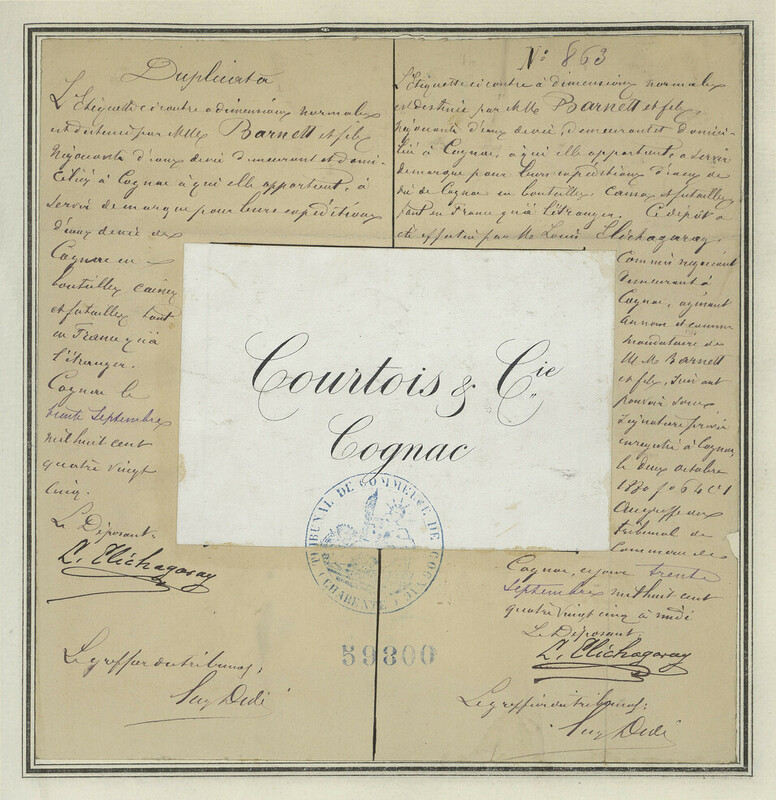 Duplicata
L'Etiquette ci contre a dimensions normales
est destinée par MMrs Barnett et fils
négociants d'eaux de vie demeurant et domi-
ciliés à Cognac à qui elle appartient, à
servir de marque pour leurs expéditions
d'eaux de vie de
Cognac en
bouteilles caisses
et futailles tant
en France qu'à
l'étranger.
Cognac le
trente Septembre
mil huit cent
quatre vingt
cinq.
Le Déposant.
L. Elichagaray
Le greffier du tribunal;
N° 863
L'Etiquette ci contre à dimensions normales
est destinée par MM Barnett et fils
négociants d'eaux de vie, demeurant et domici-
liés à Cognac, à qui elle appartient, a servir
de marque pour leurs expéditions d'eaux de
vie de Cognac en bouteilles caisses et futailles
tant en France qu'à l'étranger. Ce dépôt a
été effectué par Mr Louis Elichagaray,
Commis négociant
demeurant à
Cognac, agissant
au nom et comme
mandataire de
M M Barnett
et fils, suivant
pouvoir sous
signature privée
enregistré à Cognac,
le deux octobre
1880 fo 64 c 1
Au greffe du
tribunal de
Commerce de
Cognac, ce jour trente
Septembre mil huit cent
quatre vingt cinq à midi
Le Déposant
L. Elichagaray
Le greffier du tribunal;
Courtois & Cie
Cognac
TRIBUNAL DE COMMERCE DE COGNAC
(CHARENTE)
59300